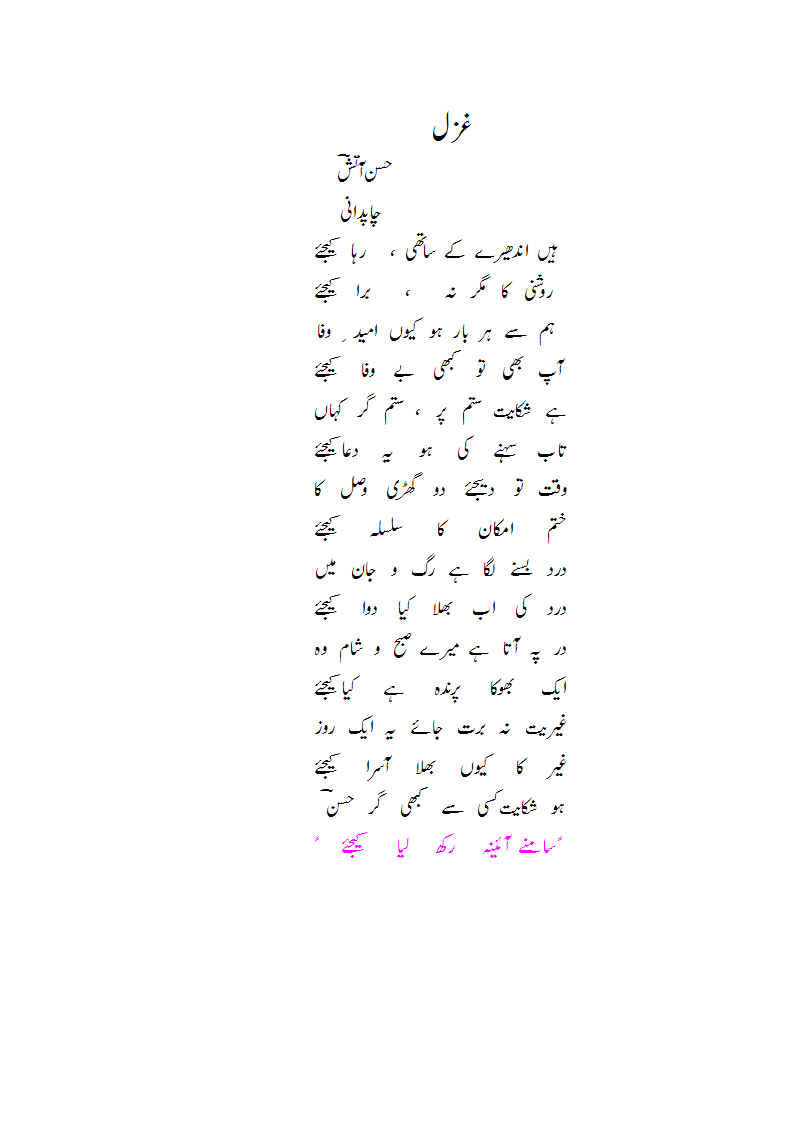 غزل
حسن آتشؔ
چاپدانی
ہیں اندھیرے کے ساتھی ، رہا کیجئے
روشنی کا مگر نہ ، برا کیجئے
ہم سے ہر بار ہو کیوں امید ِ وفا
آپ بھی تو کبھی بے وفا کیجئے
ہے شکایت ستم پر ، ستم گر کہاں
تاب سہنے کی ہو یہ دعا کیجئے
وقت تو دیجئے دو گھڑی وصل کا
ختم امکان کا سلسلہ کیجئے
درد بسنے لگا ہے رگ و جان میں
درد کی اب بھلا کیا دوا کیجئے
در پہ آتا ہے میرے صبح و شام وہ
ایک بھوکا پرندہ ہے کیا کیجئے
غیریت نہ برت جائے یہ ایک روز
غیر کا کیوں بھلا آسرا کیجئے
ہو شکایت کسی سے کبھی گر حسنؔ
"سامنے آئینہ رکھ لیا کیجئے "